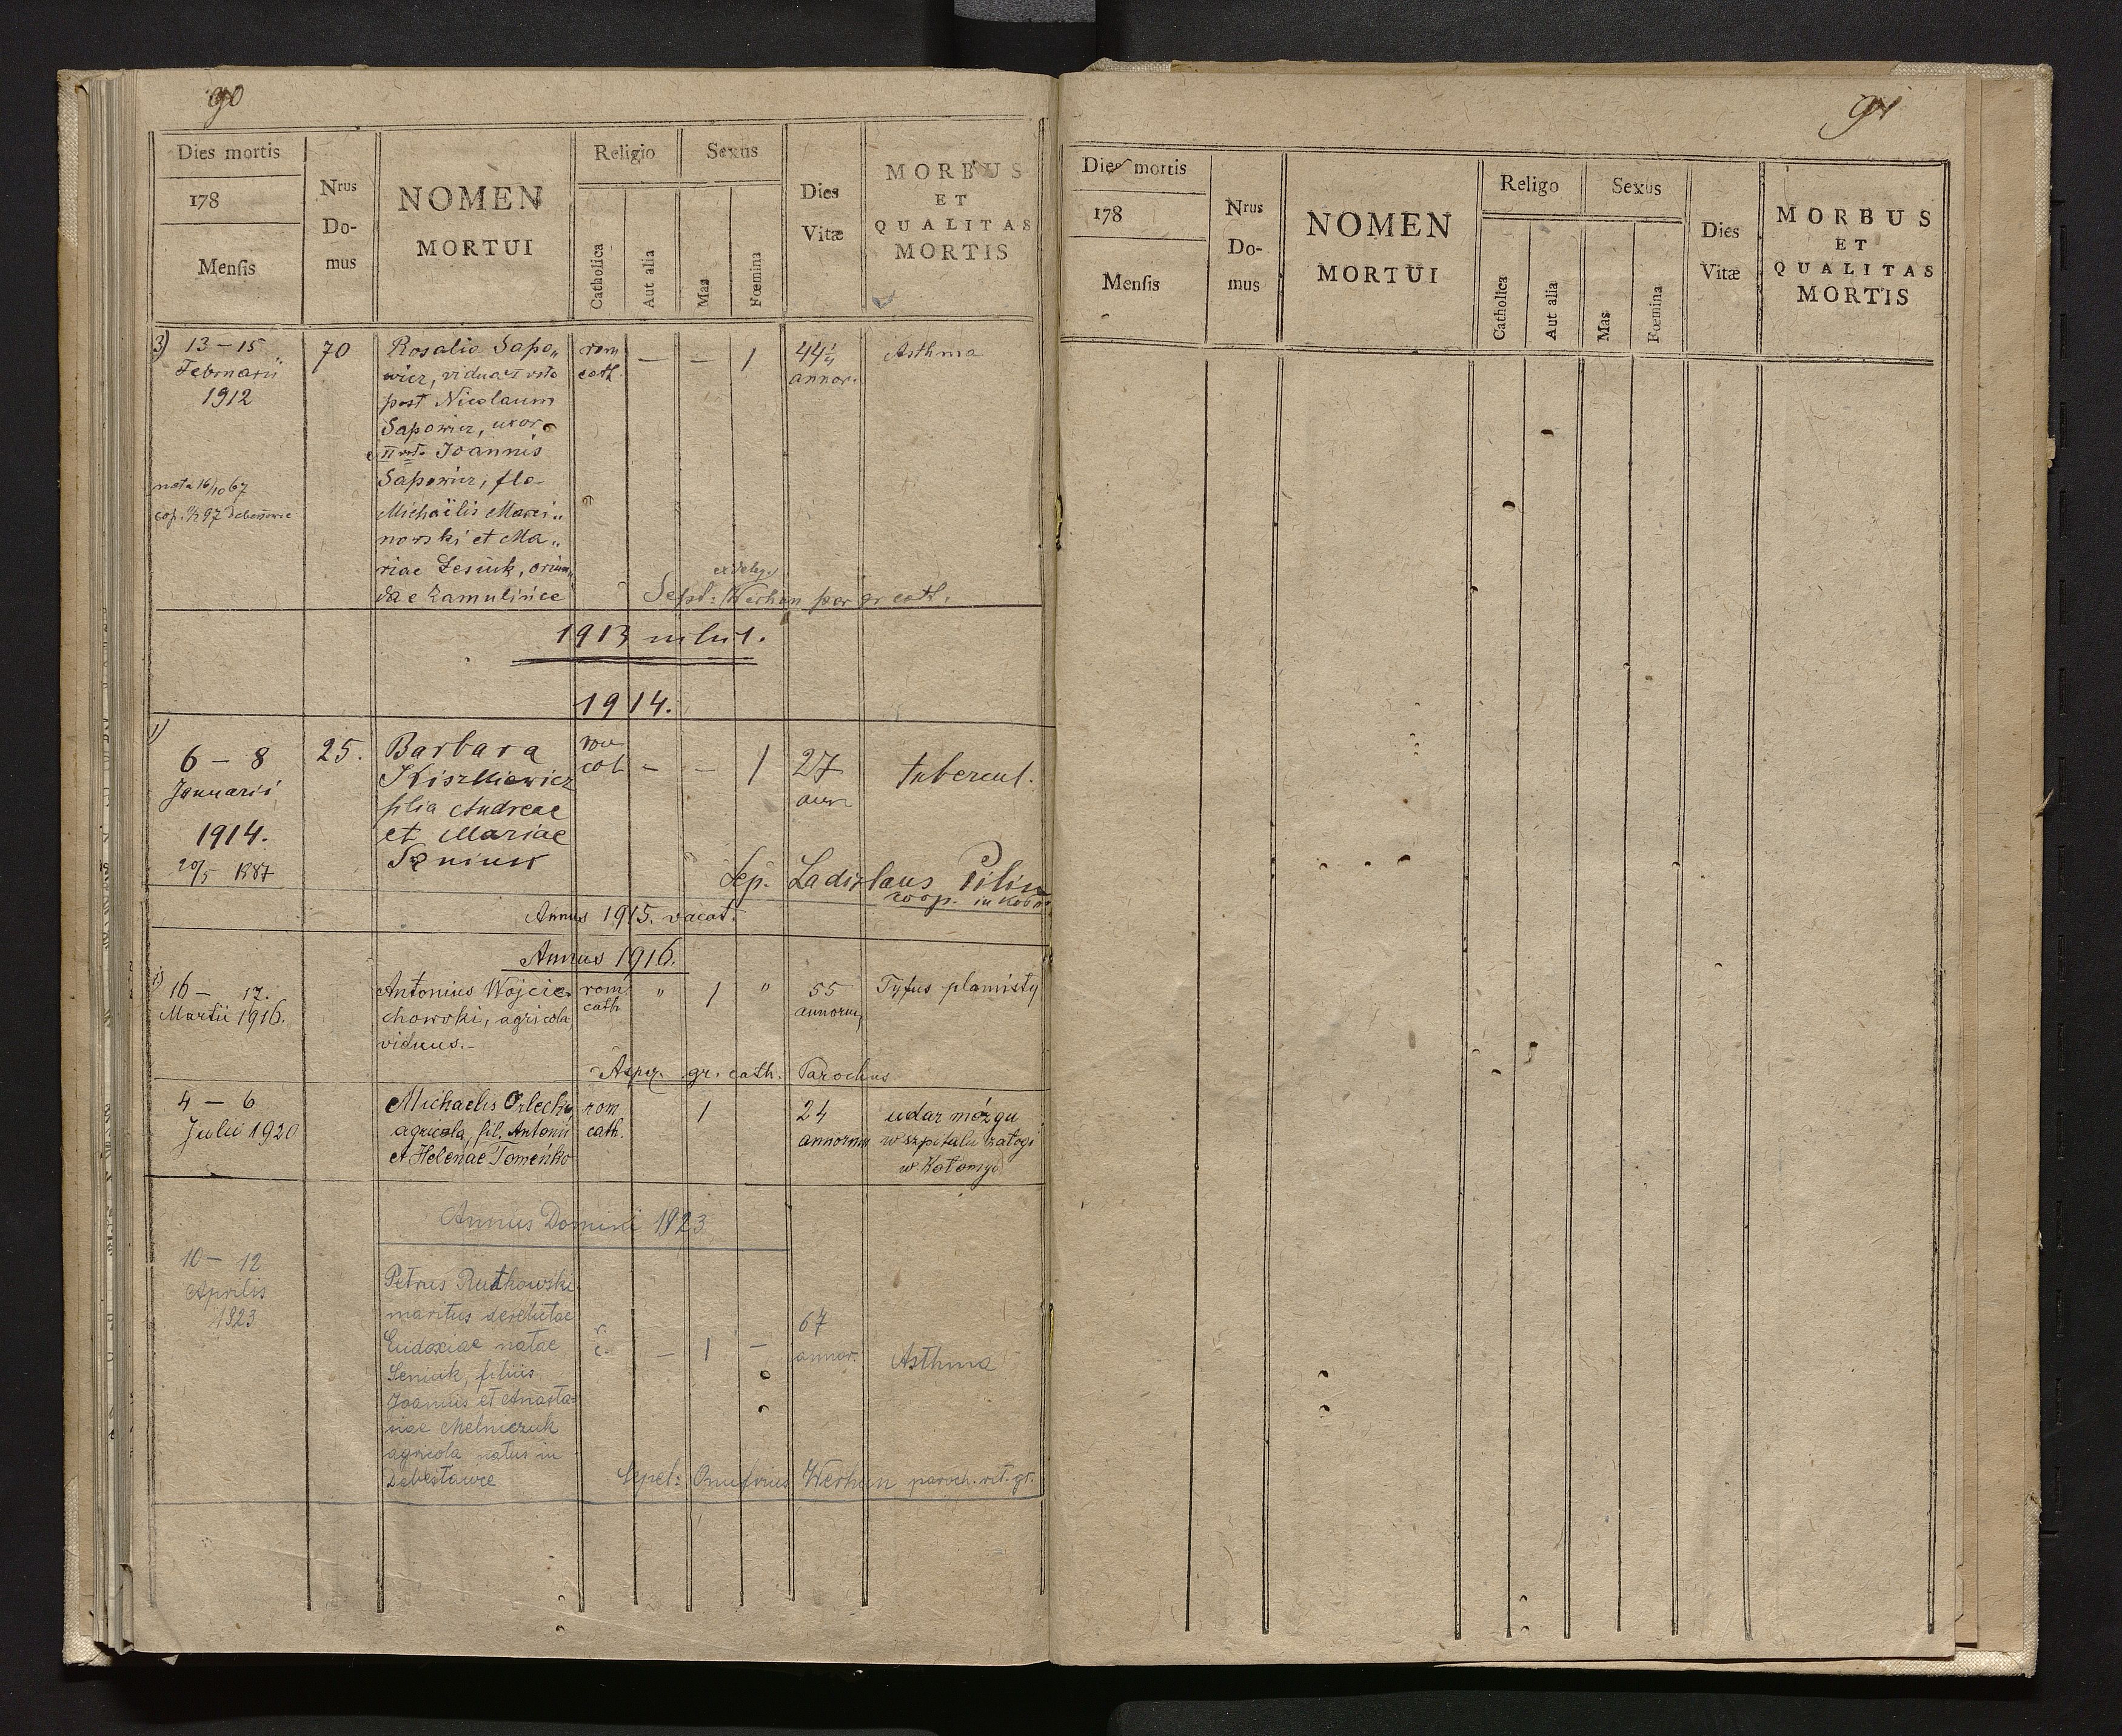 90
Dies mortis
178
Mensis
Nrus
Do-
mus
NOMEN
MORTUI
Religio
Catholica
Aut alia
Sexus
Mas
Fœmina
Dies
Vitæ
MORBUS
ET
QUALITAS
MORTIS
3) 13 – 15
Februarii
1912
nata 16/10 67
70
Rosalia Sapo„
wicz, vidua I voto
post Nicolaum
Sapowicz, uxor
II voto Joannis
Sapowicz, fla
Michaëlis Marci„
nowski et Ma„
riae Lesiuk, oriun„
da e Zamulińce
rom
cath.
— — 1
44 1/4
annor.
Asthma
ex deleg.
Sept: Werhun par gr cath.
1913 nihil.
1914.
1)
6 – 8
Januarii
1914.
20/5 1887
25.
Barbara
Kiszkiewicz
filia Andreae
et Mariae
Seniuw
rom
cat
– — 1
27
ann
tubercul.
Sep. Ladislaus Pilin
coop. in
Annus 1915. vacat.
Annus 1916.
1) 16 – 17.
Martii 1916.
Antonius Wojcie-
chowski, agricola,
viduus.–
rom.
cath
" 1 "
55
annorum
Tyfus plamisty
gr. cath. Parochus
4 – 6
Julii 1920
Michaelis Orlecki
agricola, fil. Antonii
et Helenae Tomeńko
rom
cath.
1
24
annorum
udar mózgu
w szpitalu załogi
w Kołomyi
Annus Domini 1923
10 – 12
Aprilis
1923
Petrus Rutkowski
maritus derelictae
Eudoxiae natae
Seniuk, filius
Joannis et Anasta-
siae Melniczuk
agricola natus in
Debesławce
r.
c.
— 1 —
67
annor.
Asthma
Sepel: Onufrius Werhun paroch. rit. gr.
91
Dies mortis
178
Mensis
Nrus
Do-
mus
NOMEN
MORTUI
Religo
Catholica
Aut alia
Sexus
Mas
Fœmina
Dies
Vitæ
MORBUS
ET
QUALITAS
MORTIS